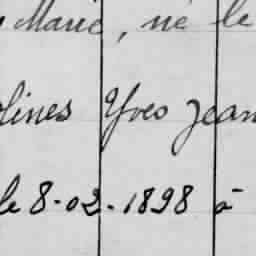 Marie, né le
lines Yves Jean
le 8-02-1898 à